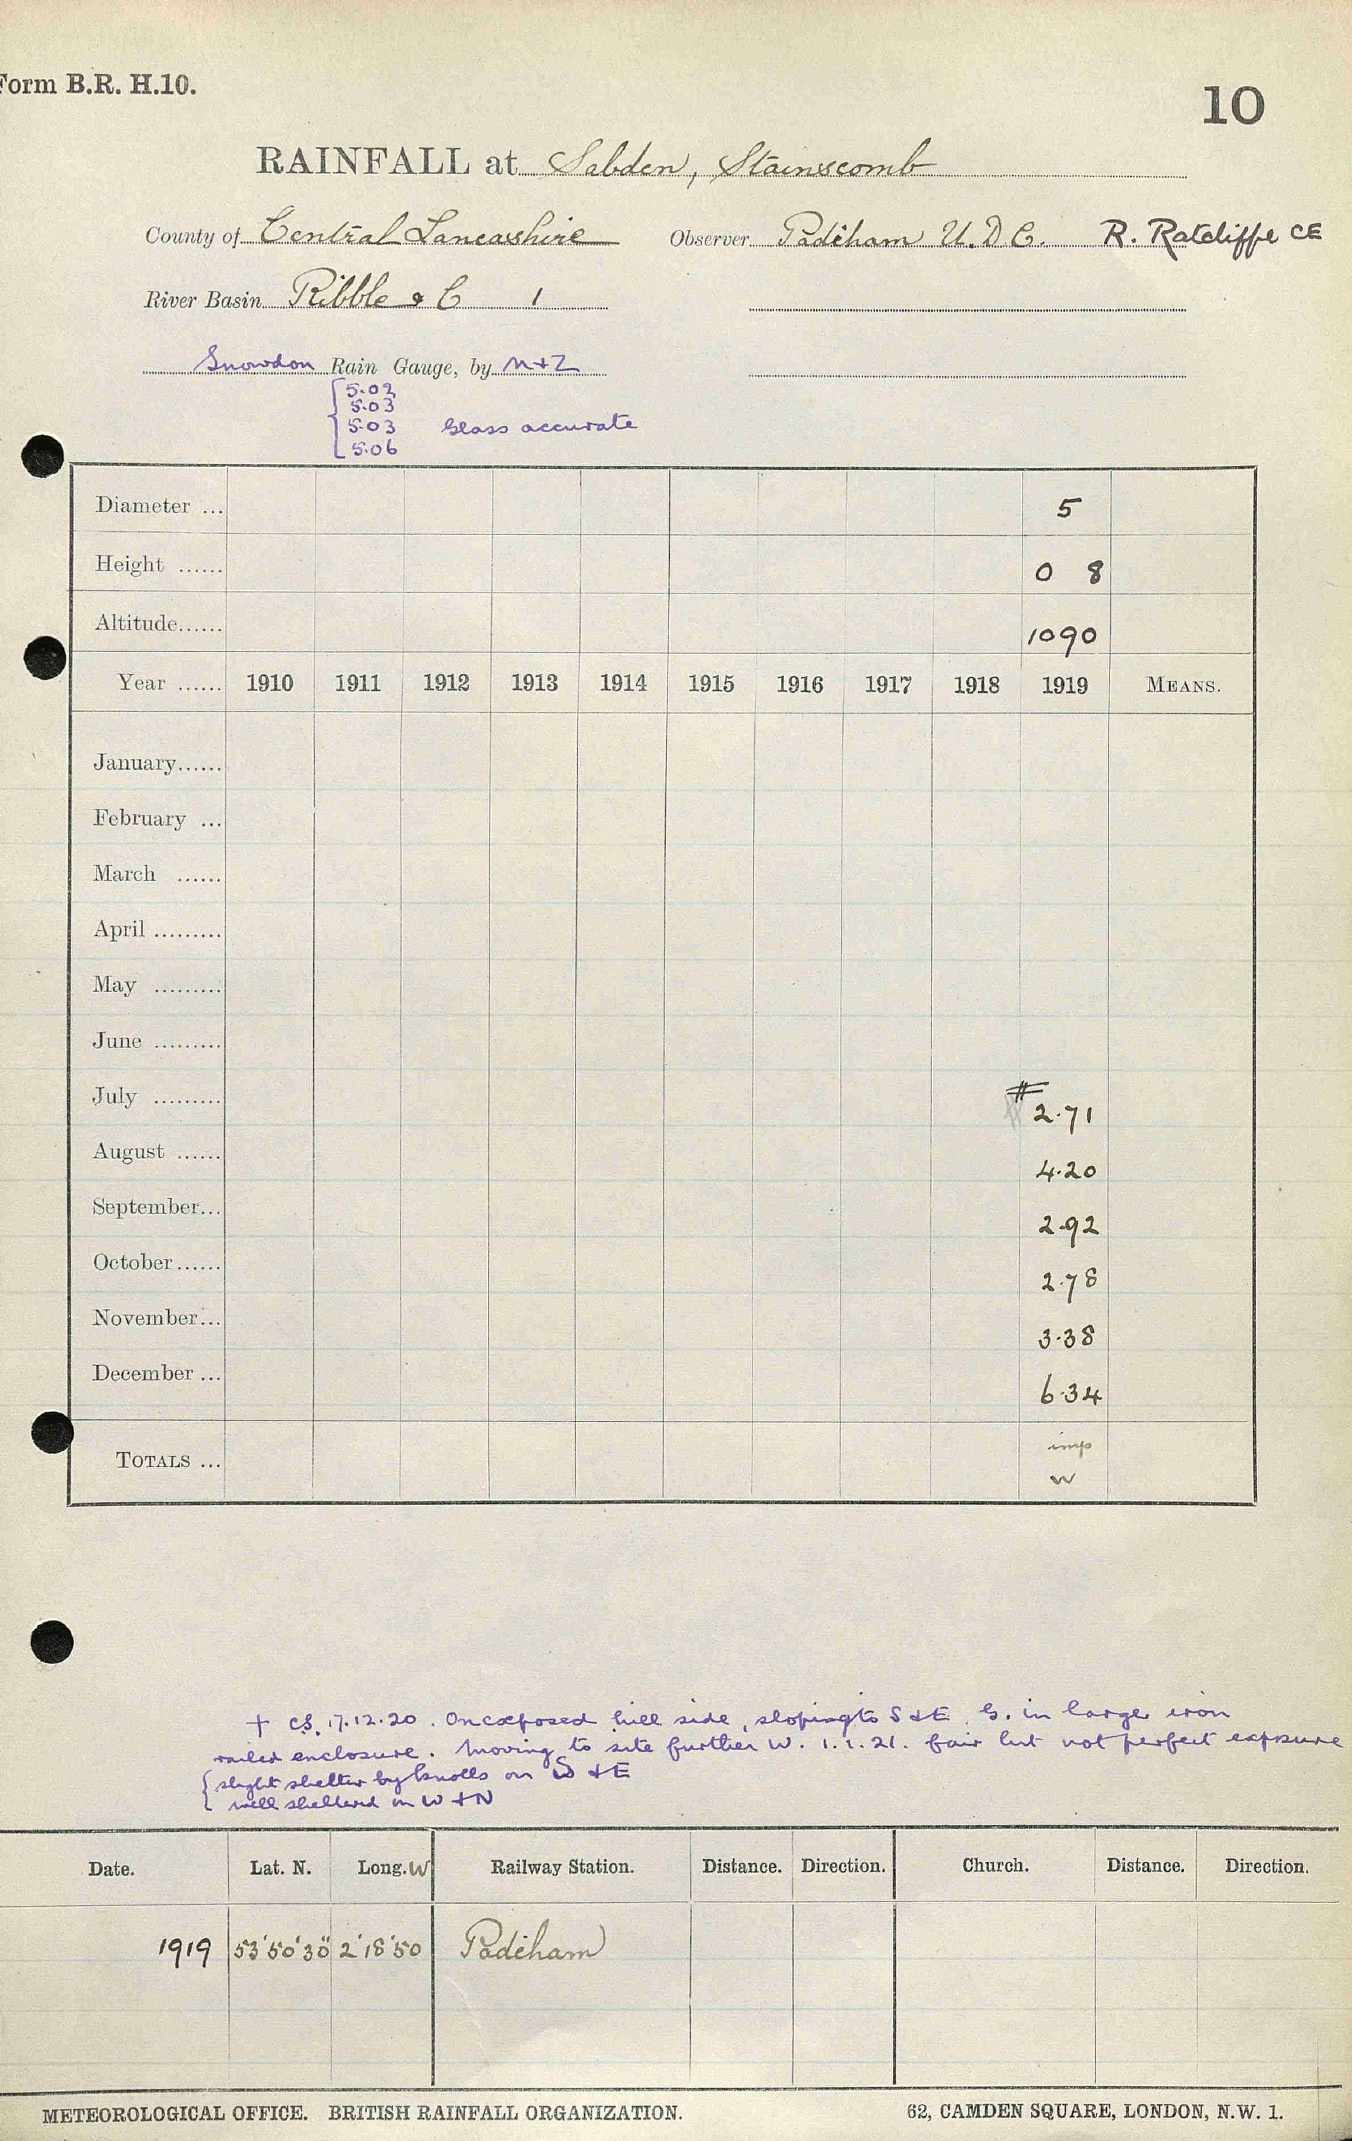 Form B.R. H.10.
10
RAINFALL at Sabden, Stainscomb
County of Central Lancashire Observer Padiham U.D.C. R. Ratcliffe CE
River Basin Ribble & C 1
Snowdon Rain Gauge, by N+Z
5.02
5.03
5.03 Glass accurate
5.06
Diameter ... 5
Height ...... 0 8
Altitude...... 1090
Year ...... 1910 1911 1912 1913 1914 1915 1916 1917 1918 1919 MEANS.
January......
February ...
March ......
April .........
May .........
June .........
July ......... # 2.71
August ...... 4.20
September... 2.92
October...... 2.78
November... 3.38
December ... 6.34
TOTALS ... imp
w
+ CS. 17.12.20. On exposed hill side, sloping to S & E. G. in large iron
railed enclosure. Moving to site further W. 1.1.21. fair but not perfect exposure
slight shelter by knolls on S + E
well sheltered on W + N
Date. Lat. N. Long. W Railway Station. Distance. Direction. Church. Distance. Direction.
1919 53°50'30" 2°18'50 Padiham
METEOROLOGICAL OFFICE. BRITISH RAINFALL ORGANIZATION. 62, CAMDEN SQUARE, LONDON, N.W. 1.